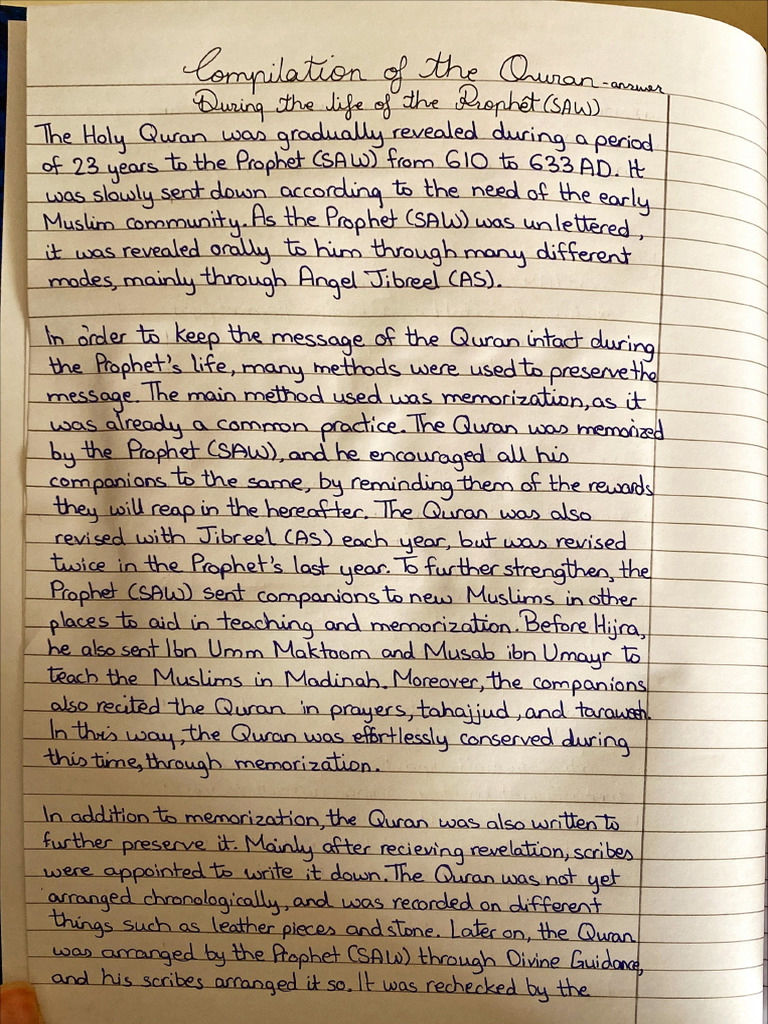 Compilation of the Quran -answer
During the life of the Prophet (SAW)
The Holy Quran was gradually revealed during a period
of 23 years to the Prophet (SAW) from 610 to 633 AD. It
was slowly sent down according to the need of the early
Muslim community. As the Prophet (SAW) was unlettered,
it was revealed orally to him through many different
modes, mainly through Angel Jibreel (AS).
In order to keep the message of the Quran intact during
the Prophet's life, many methods were used to preserve the
message. The main method used was memorization, as it
was already a common practice. The Quran was memorized
by the Prophet (SAW), and he encouraged all his
companions to the same, by reminding them of the rewards
they will reap in the hereafter. The Quran was also
revised with Jibreel (AS) each year, but was revised
twice in the Prophet's last year. To further strengthen, the
Prophet (SAW) sent companions to new Muslims in other
places to aid in teaching and memorization. Before Hijra,
he also sent Ibn Umm Maktoom and Musab ibn Umayr to
teach the Muslims in Madinah. Moreover, the companions
also recited the Quran in prayers, tahajjud, and taraweeh.
In this way, the Quran was effortlessly conserved during
this time, through memorization.
In addition to memorization, the Quran was also written to
further preserve it. Mainly after recieving revelation, scribes
were appointed to write it down. The Quran was not yet
arranged chronologically, and was recorded on different
things such as leather pieces and stone. Later on, the Quran
was arranged by the Prophet (SAW) through Divine Guidance,
and his scribes arranged it so. It was rechecked by the